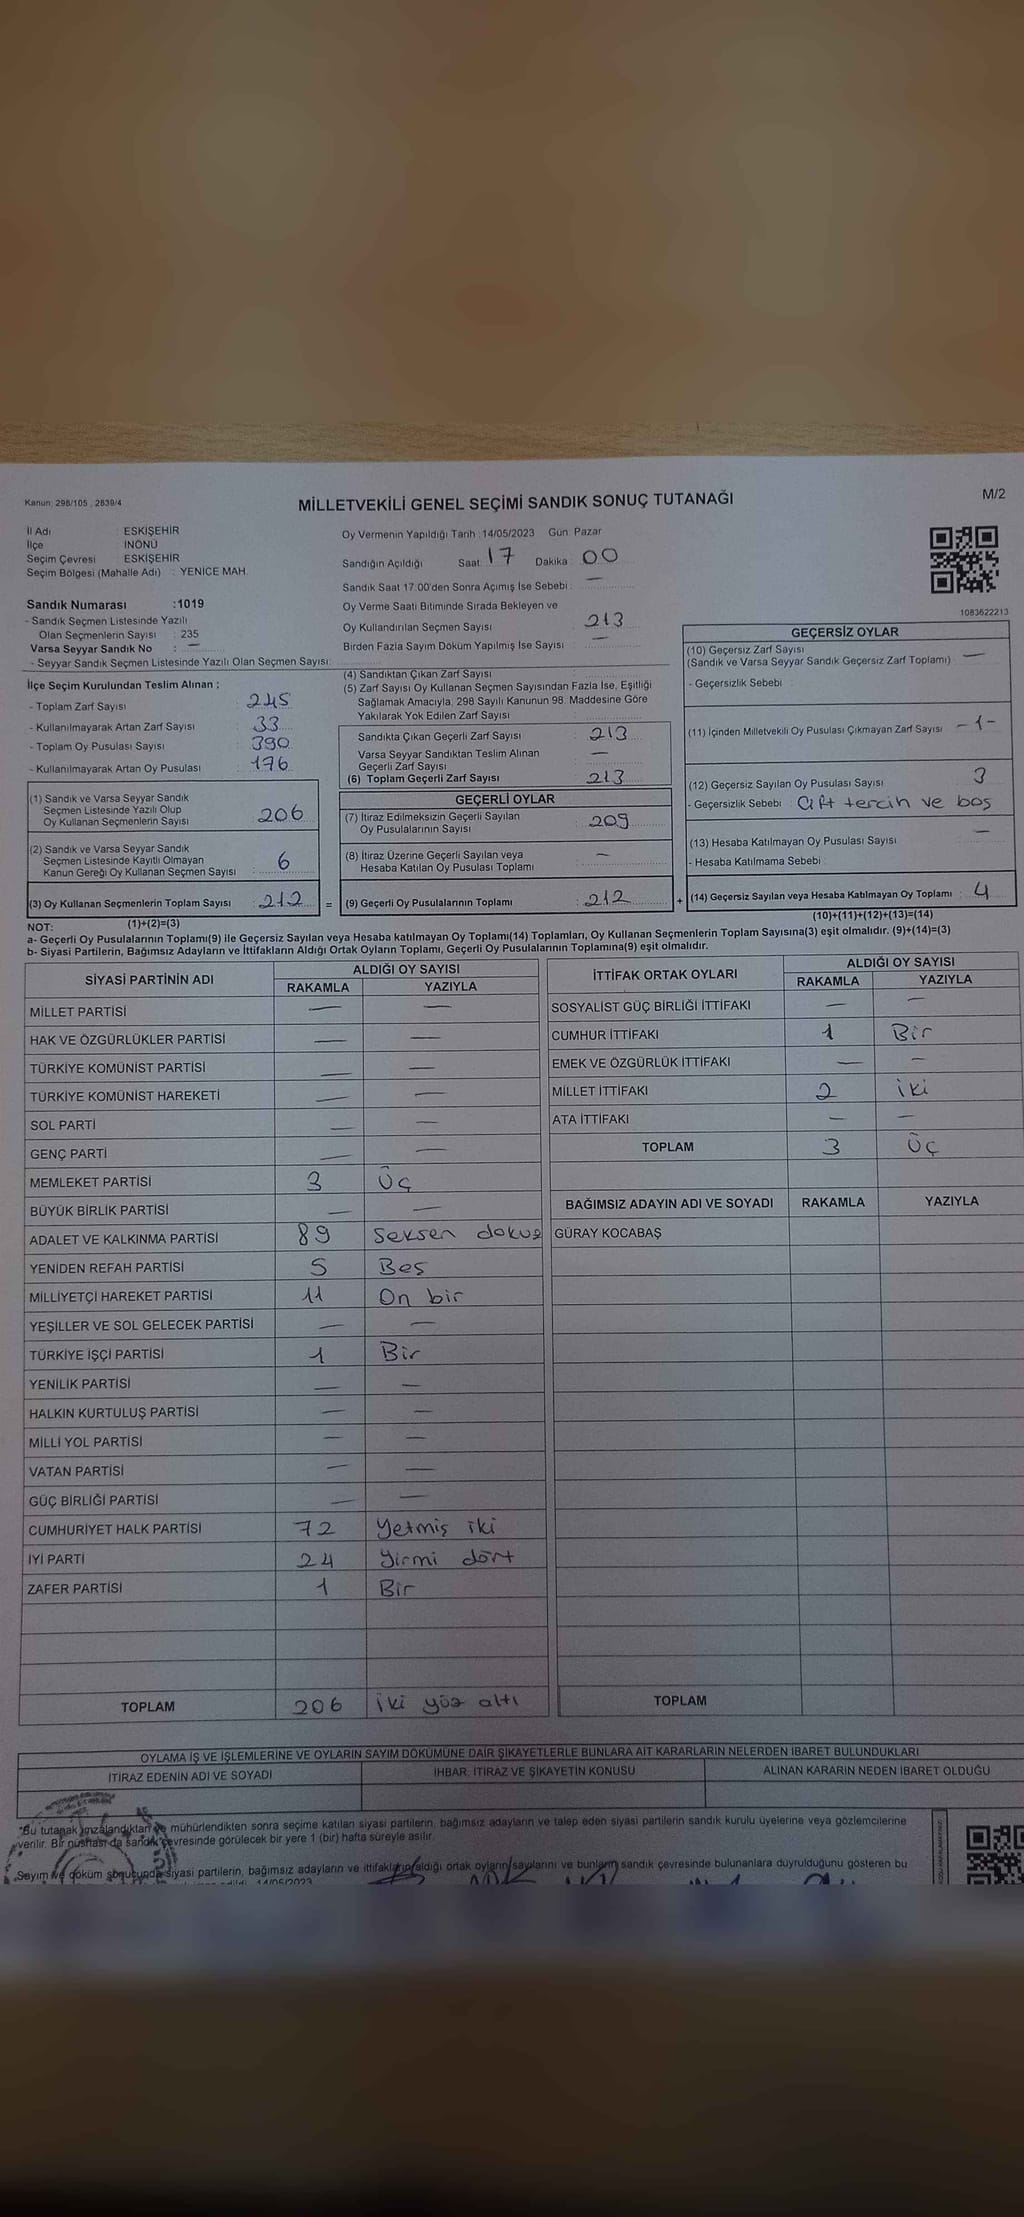 Kanun: 298/105 , 2839/4
MİLLETVEKİLİ GENEL SEÇİMİ SANDIK SONUÇ TUTANAĞI
M/2
İl Adı : ESKİŞEHİR
İlçe : İNÖNÜ
Seçim Çevresi : ESKİŞEHİR
Seçim Bölgesi (Mahalle Adı) : YENİCE MAH.
Oy Vermenin Yapıldığı Tarih : 14/05/2023 Gün: Pazar
Sandığın Açıldığı Saat: 17 Dakika: 00
Sandık Saat 17:00'den Sonra Açımış İse Sebebi : —
Oy Verme Saati Bitiminde Sırada Bekleyen ve
Oy Kullandırılan Seçmen Sayısı 213
Birden Fazla Sayım Döküm Yapılmış İse Sayısı : —
1083622213
Sandık Numarası :1019
- Sandık Seçmen Listesinde Yazılı
Olan Seçmenlerin Sayısı : 235
Varsa Seyyar Sandık No : —
- Seyyar Sandık Seçmen Listesinde Yazılı Olan Seçmen Sayısı:
İlçe Seçim Kurulundan Teslim Alınan ;
- Toplam Zarf Sayısı : 245
- Kullanılmayarak Artan Zarf Sayısı : 33
- Toplam Oy Pusulası Sayısı : 390
- Kullanılmayarak Artan Oy Pusulası : 176
(1) Sandık ve Varsa Seyyar Sandık
Seçmen Listesinde Yazılı Olup
Oy Kullanan Seçmenlerin Sayısı : 206
(2) Sandık ve Varsa Seyyar Sandık
Seçmen Listesinde Kayıtlı Olmayan
Kanun Gereği Oy Kullanan Seçmen Sayısı : 6
(3) Oy Kullanan Seçmenlerin Toplam Sayısı : 212 =
(1)+(2)=(3)
(4) Sandıktan Çıkan Zarf Sayısı
(5) Zarf Sayısı Oy Kullanan Seçmen Sayısından Fazla İse, Eşitliği
Sağlamak Amacıyla, 298 Sayılı Kanunun 98. Maddesine Göre
Yakılarak Yok Edilen Zarf Sayısı
Sandıkta Çıkan Geçerli Zarf Sayısı : 213
Varsa Seyyar Sandıktan Teslim Alınan
Geçerli Zarf Sayısı : —
(6) Toplam Geçerli Zarf Sayısı : 213
GEÇERLİ OYLAR
(7) İtiraz Edilmeksizin Geçerli Sayılan
Oy Pusulalarının Sayısı : 209
(8) İtiraz Üzerine Geçerli Sayılan veya
Hesaba Katılan Oy Pusulası Toplamı : —
(9) Geçerli Oy Pusulalarının Toplamı : 212 +
GEÇERSİZ OYLAR
(10) Geçersiz Zarf Sayısı
(Sandık ve Varsa Seyyar Sandık Geçersiz Zarf Toplamı) : —
- Geçersizlik Sebebi :
(11) İçinden Milletvekili Oy Pusulası Çıkmayan Zarf Sayısı : -1-
(12) Geçersiz Sayılan Oy Pusulası Sayısı : 3
- Geçersizlik Sebebi : Çift tercih ve boş
(13) Hesaba Katılmayan Oy Pusulası Sayısı : —
- Hesaba Katılmama Sebebi :
(14) Geçersiz Sayılan veya Hesaba Katılmayan Oy Toplamı : 4
(10)+(11)+(12)+(13)=(14)
NOT:
a- Geçerli Oy Pusulalarının Toplamı(9) ile Geçersiz Sayılan veya Hesaba katılmayan Oy Toplamı(14) Toplamları, Oy Kullanan Seçmenlerin Toplam Sayısına(3) eşit olmalıdır. (9)+(14)=(3)
b- Siyasi Partilerin, Bağımsız Adayların ve İttifakların Aldığı Ortak Oyların Toplamı, Geçerli Oy Pusulalarının Toplamına(9) eşit olmalıdır.
SİYASİ PARTİNİN ADI ALDIĞI OY SAYISI
RAKAMLA YAZIYLA
MİLLET PARTİSİ — —
HAK VE ÖZGÜRLÜKLER PARTİSİ — —
TÜRKİYE KOMÜNİST PARTİSİ — —
TÜRKİYE KOMÜNİST HAREKETİ — —
SOL PARTİ — —
GENÇ PARTİ — —
MEMLEKET PARTİSİ 3 Üç
BÜYÜK BİRLİK PARTİSİ — —
ADALET VE KALKINMA PARTİSİ 89 Seksen dokuz
YENİDEN REFAH PARTİSİ 5 Beş
MİLLİYETÇİ HAREKET PARTİSİ 11 On bir
YEŞİLLER VE SOL GELECEK PARTİSİ — —
TÜRKİYE İŞÇİ PARTİSİ 1 Bir
YENİLİK PARTİSİ — —
HALKIN KURTULUŞ PARTİSİ — —
MİLLİ YOL PARTİSİ — —
VATAN PARTİSİ — —
GÜÇ BİRLİĞİ PARTİSİ — —
CUMHURİYET HALK PARTİSİ 72 Yetmiş iki
İYİ PARTİ 24 Yirmi dört
ZAFER PARTİSİ 1 Bir
TOPLAM 206 İki yüz altı
İTTİFAK ORTAK OYLARI ALDIĞI OY SAYISI
RAKAMLA YAZIYLA
SOSYALİST GÜÇ BİRLİĞİ İTTİFAKI — —
CUMHUR İTTİFAKI 1 Bir
EMEK VE ÖZGÜRLÜK İTTİFAKI — —
MİLLET İTTİFAKI 2 iki
ATA İTTİFAKI — —
TOPLAM 3 Üç
BAĞIMSIZ ADAYIN ADI VE SOYADI RAKAMLA YAZIYLA
GÜRAY KOCABAŞ
TOPLAM
OYLAMA İŞ VE İŞLEMLERİNE VE OYLARIN SAYIM DÖKÜMÜNE DAİR ŞİKAYETLERLE BUNLARA AİT KARARLARIN NELERDEN İBARET BULUNDUKLARI
İTİRAZ EDENİN ADI VE SOYADI İHBAR, İTİRAZ VE ŞİKAYETİN KONUSU ALINAN KARARIN NEDEN İBARET OLDUĞU
*Bu tutanak imzalandıktan ve mühürlendikten sonra seçime katılan siyasi partilerin, bağımsız adayların ve talep eden siyasi partilerin sandık kurulu üyelerine veya gözlemcilerine
verilir. Bir nüshası da sandık çevresinde görülecek bir yere 1 (bir) hafta süreyle asılır.
Sayım ve döküm sonucunda siyasi partilerin, bağımsız adayların ve ittifakların aldığı ortak oyların sayılarını ve bunların sandık çevresinde bulunanlara duyrulduğunu gösteren bu
14/05/2023